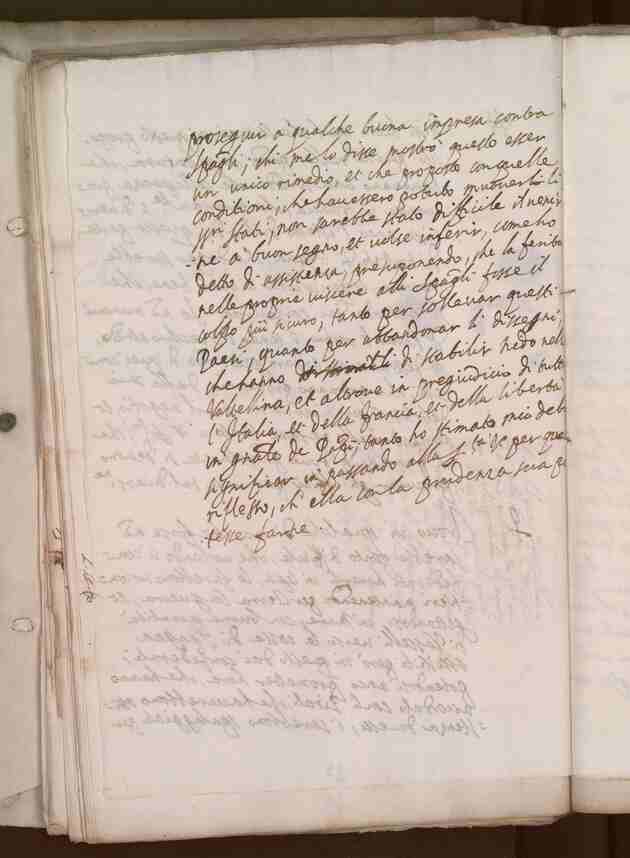 proseguir à qualche buona impresa contra
Spagli; chi me lo disse mostrò questo esser
un unico rimedio, et che proposto con quelle
conditioni, che havessero potuto muover li
ssri Stati, non sarebbe stato difficile il venir
-ne à buon segno, et volse inferir, come ho
detto di assistenza, presuponendo, che la ferita
nelle proprie viscere alli Spagli fosse il
colpo più sicuro, tanto per sollevar questi
Paesi, quanto per abbandonar li dissegni,
che hanno di stabilir nido nella
Valtellina, et altrove in pregiudicio di tutta
l'Italia, et della Francia, et della libertà
in de tanto ho stimato mio deb
significar in passando alla Sta Ve per quel
riflesso, ch'ella con la prudenza sua po
tesse farne.